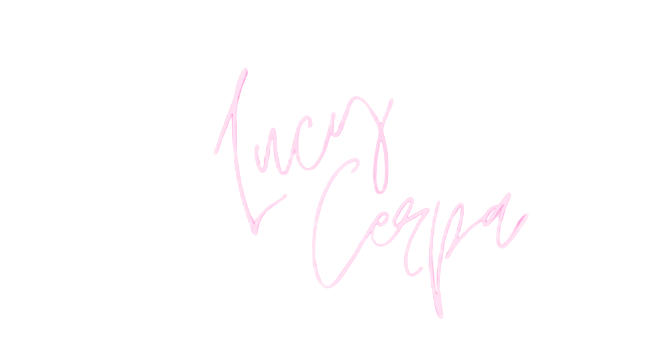 Lucy
Cerpa